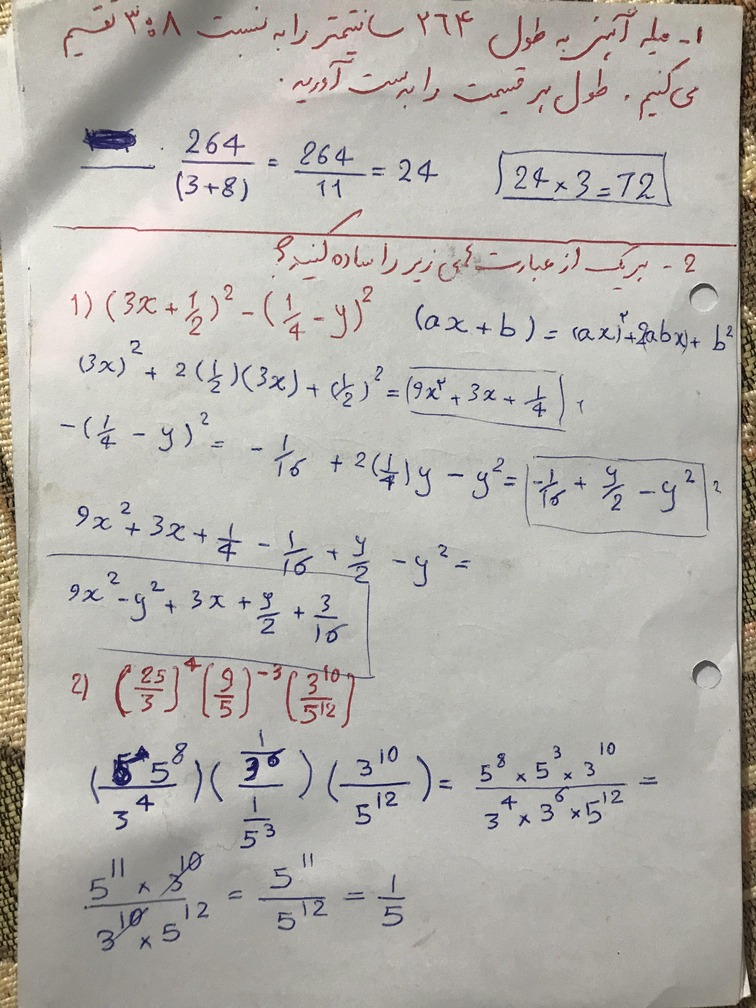 ۱- میله آهنی به طول ۲۶۴ سانتیمتر را به نسبت ۳:۸ تقسیم
می‌کنیم. طول هر قسمت را به دست آورید.
264/(3+8) = 264/11 = 24    24 × 3 = 72
2- هریک از عبارت های زیر را ساده کنید؟
1) (3x + 1/2)² - (1/4 - y)²    (ax + b) = (ax)² + 2abx) + b²
(3x)² + 2(1/2)(3x) + (1/2)² = (9x² + 3x + 1/4) 1
-(1/4 - y)² = -1/16 + 2(1/4)y - y² = -1/16 + y/2 - y² 2
9x² + 3x + 1/4 - 1/16 + y/2 - y² =
9x² - y² + 3x + y/2 + 3/16
2) (25/3)⁴ (9/5)⁻³ (3¹⁰/5¹²)
(5⁸/3⁴) ((1/3⁶)/(1/5³)) (3¹⁰/5¹²) = (5⁸ × 5³ × 3¹⁰)/(3⁴ × 3⁶ × 5¹²) =
(5¹¹ × 3¹⁰)/(3¹⁰ × 5¹²) = 5¹¹/5¹² = 1/5